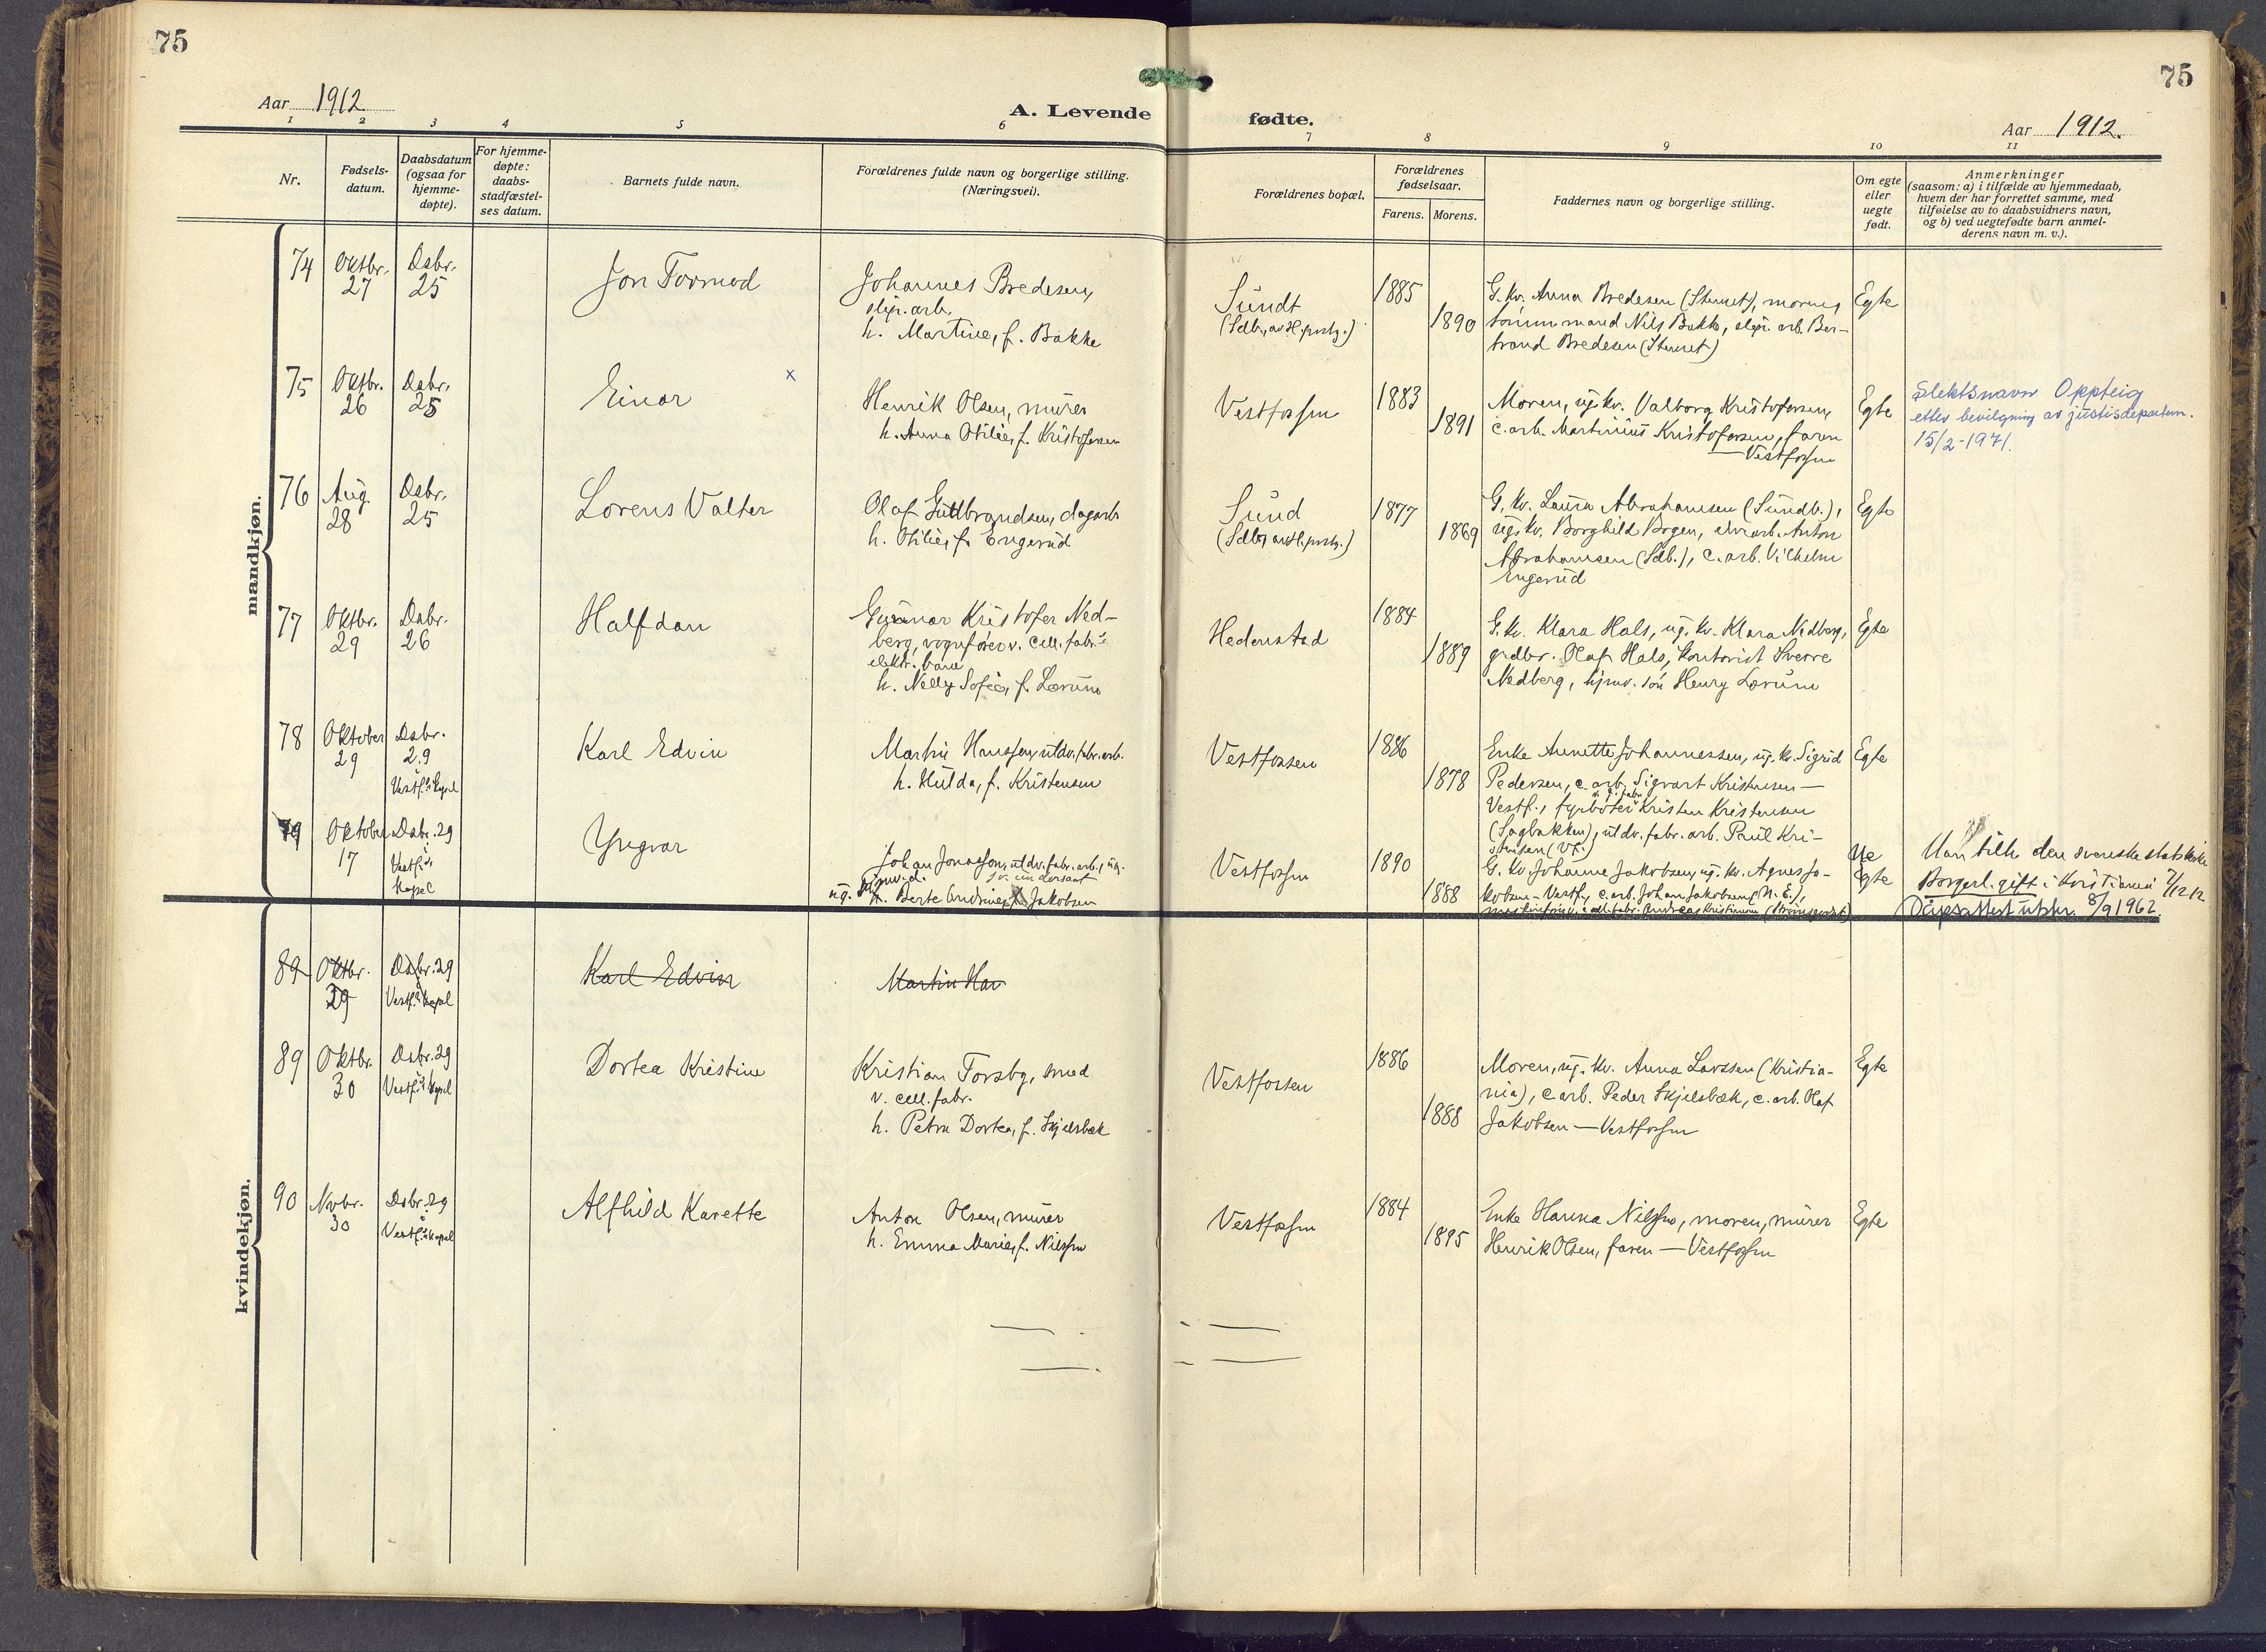 75
75
Aar 1912
A. Levende fødte.
Aar 1912.
1 2 3 4 5 6 7 8 9 10 11
Nr.
Fødsels-
datum.
Daabsdatum
(ogsaa for
hjemme-
døpte).
For hjemme-
døpte:
daabs-
stadfæstel-
ses datum.
Barnets fulde navn.
Forældrenes fulde navn og borgerlige stilling.
(Næringsvei).
Forældrenes bopæl.
Forældrenes
fødselsaar.
Farens. Morens.
Faddernes navn og borgerlige stilling.
Om egte
eller
uegte
født.
Anmerkninger
(saasom: a) i tilfælde av hjemmedaab,
hvem der har forrettet samme, med
tilføielse av to daabsvidners navn,
og b) ved uegtefødte barn anmel-
derens navn m. v.).
mandkjøn.
74
Oktbr.
27
Dsbr.
25
Jon Tormod
Johannes Bredesen,
slip. arb.
h. Martine, f. Bakke
Sundt
(Sdbg. av H.prstg.)
1885
1890
G. kv. Anna Bredesen (Stennet), morens,
tømmermand Nils Bakke, slip. arb. Ber-
trand Bredesen (Stennet)
Egte
75
Oktbr.
26
Dsbr.
25
Einar
x
Henrik Olsen, murer
h. Anna Otilie, f. Kristofersen
Vestfossen
1883
1891
Moren, ug. kv. Valborg Kristofersen,
c. arb. Martinius Kristofersen, faren
— Vestfossen
Egte
Slektsnavn Oppteig
etter bevilgning av justisdepartem.
15/2-1971.
76
Aug.
28
Dsbr.
25
Lorens Valter
Olaf Guttbrandsen, dagarb.
h. Otilie, f. Engerud
Sund
(Sdbg av H.prstg.)
1877
1869
G. kv. Laura Abrahamsen (Sundb.),
ug. kv. Borghild Borgen, elvearb. Anton
Abrahamsen (Sdb.), c. arb. Vilhelm
Engerud
Egte
77
Oktbr.
29
Dsbr.
26
Halfdan
Gunnar Kristofer Ned-
berg, vognfører v. cell. fabr.s
elektr. bane
h. Nelly Sofie, f. Lærum
Hedenstad
1884
1889
G. kv. Klara Hals, ug. kv. Klara Nedberg,
grdbr. Olaf Hals, kontorist Sverre
Nedberg, hjmv. søn Henry Lærum
Egte
78
Oktober
29
Dsbr.
29
Vestf.s kapel
Karl Edvin
Martin Hanssen, utdv. fabr. arb.
h. Hulda, f. Kristensen
Vestfossen
1886
1878
Enke Annette Johannessen, ug. kv. Sigrid
Pedersen, c. arb. Sigvart Kristensen —
Vestf., fyrbøter Kristen Kristensen
(Sagbakken), utdv. fabr. arb. Paul Kri-
stensen (Vf.)
Egte
79
Oktober
17
Dsbr. 29
Vestf.s
kapel
Yngvar
Johan Jonasson, utdv. fabr. arb., ug.
sv. undersaat
ug. hjmv. d. Berte Andrine Jakobsen
Vestfossen
1890
1888
G. kv. Johanne Jakobsen, ug. kv. Agnes Ja-
kobsen – Vestf., c. arb. Johan Jakobsen (N. E.),
Ue
Egte
Man tilh. den svenske statskirke
Borgerl. gift i Kristiania 7/12 12
Dåpsattest utskr. 8/9 1962.
kvindekjøn.
89
Oktbr.
29
Dsbr. 29
Vestf.s kapel
Karl Edvin
Martin Han
89
Oktbr.
30
Dsbr. 29
Vestf.s kapel
Dortea Kristine
Kristian Torsbg, smed
v. cell. fabr.
h. Petra Dortea, f. Skjelsbæk
Vestfossen
1886
1888
Moren, ug. kv. Anna Larssen (Kristia-
nia), c. arb. Peder Skjelsbæk, c. arb. Olaf
Jakobsen — Vestfossen
Egte
90
Novbr.
30
Dsbr. 29
Vestf.s kapel
Alfhild Karette
Anton Olsen, murer
h. Emma Marie, f. Nilssen
Vestfossen
1884
1895
Enke Hanna Nilssen, moren, murer
Henrik Olsen, faren — Vestfossen
Egte